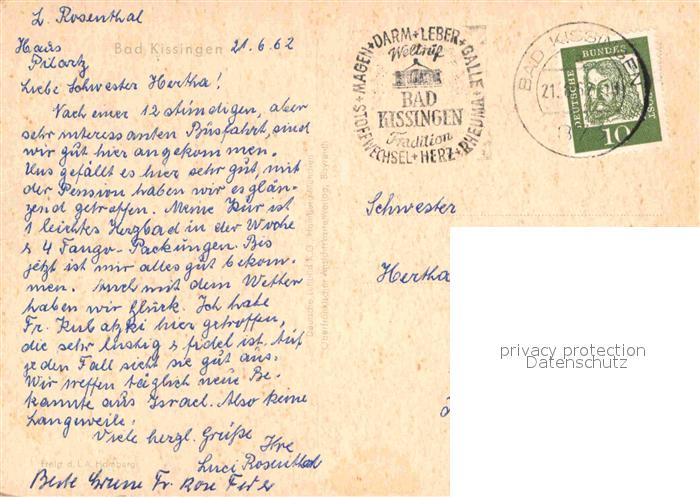 L. Rosenthal
Haus
Pilartz
Bad Kissingen 21.6.62
Liebe Schwester Hertha!
Nach einer 12 stündigen, aber
sehr interessanten Büsfahrt, sind
wir gut hier angekommen.
Uns gefällt es hier sehr gut, mit
der Pension haben wir es glän-
zend getroffen. Meine Kür ist
1 leichtes Herzbad in der Woche
& 4 Fango-Packungen. Bis
jetzt ist mir alles gut bekom-
men. Auch mit dem Wetter
haben wir Glück. Ich habe
Fr. Kubatzki hier getroffen,
die sehr lustig & fidel ist. Auf
jeden Fall sieht sie gut aus.
Wir treffen täglich neue Be-
kannte aus Israel. Also keine
Langeweile!
Viele herzl. Grüße
Ihre
Luci Rosenthal
Beste Grüsse Fr. Rose
STOFFWECHSEL + MAGEN + DARM + LEBER + GALLE + RHEUMA + HERZ
Weltruf
BAD
KISSINGEN
Tradition
BAD KISSINGEN
21.
DEUTSCHE BUNDESPOST
10
Schwester
Hertha
privacy protection
Datenschutz